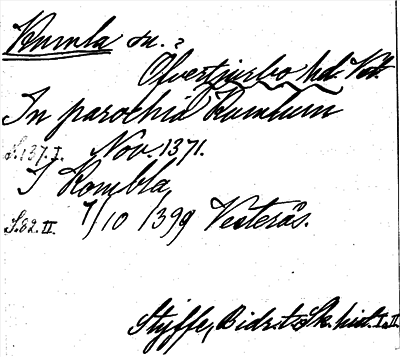 Kumla sn.?
Övertjurbo hd. Vstm.
In parochia Rumlum
S. 137. I. Nov. 1371.
I Rombla
S. 82. II. 7/10 1399 Vesterås.
Styffe, Bidr. t. Sk. hist. I. II